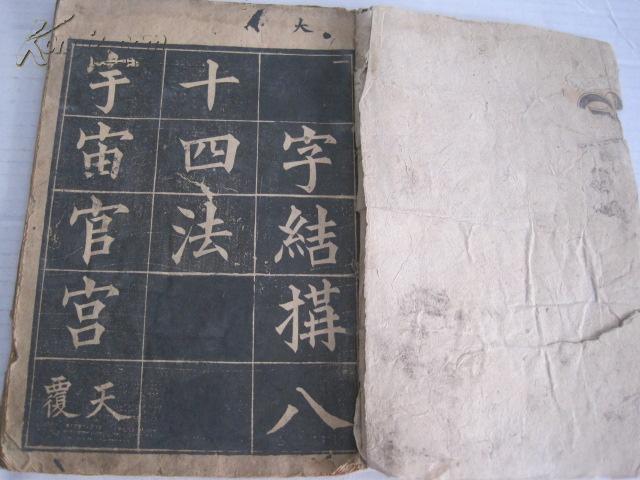 大
字結搆八
十四法
宇宙官宮
天覆